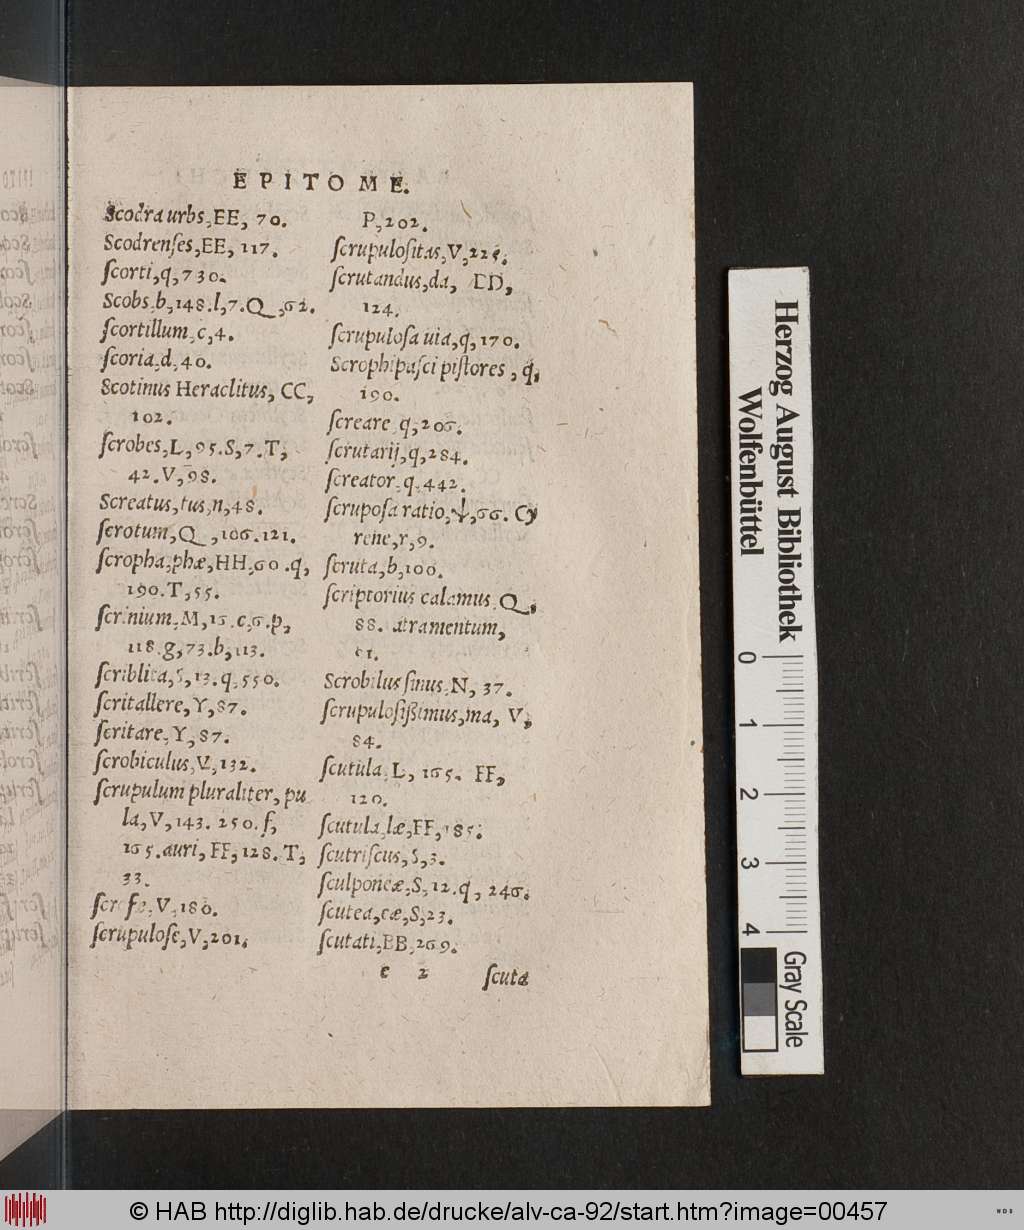 EPITOME.
Scodra urbs, EE, 70.
Scodrenses, EE, 117.
ſcorti, q, 730.
Scobs. b, 148. l, 7. Q, 62.
ſcortillum, c, 4.
ſcoria, d, 40.
Scotinus Heraclitus, CC,
102.
ſcrobes, L, 95. S, 7. T,
42. V, 98.
Screatus, tus, n, 48.
ſcrotum, Q, 106. 121.
ſcropha, phæ, HH, 60. q,
190. T, 55.
ſcrinium, M, 16. c, 6. p,
118. g, 73. b, 113.
ſcriblita, S, 13. q, 550.
ſcritallere, Y, 87.
ſcritare, Y, 87.
ſcrobiculus, V, 132.
ſcrupulum pluraliter, pu
la, V, 143. 250. f,
165. auri, FF, 128. T,
33.
V, 180.
ſcrupuloſe, V, 201.
P, 202.
ſcrupuloſitas, V,
ſcrutandus, da, DD,
124.
ſcrupuloſa uia, q, 170.
Scrophipaſci piſtores, q,
190.
ſcreare, q, 206.
ſcrutarij, q, 284.
ſcreator, q, 442.
ſcrupoſa ratio, ↓, 66. Cy
rene, r, 9.
ſcruta, b, 100.
ſcriptorius calamus, Q,
88. atramentum,
Scrobilus ſinus, N, 37.
ſcrupuloſißimus, ma, V,
84.
ſcutula, L, 165. FF,
120.
ſcutula, læ, FF, 185.
ſcutriſcus, S, 3.
ſculponeæ, S, 12. q, 246.
ſcutea, eæ, S, 23.
ſcutati, BB, 269.
e 2 ſcuta
Herzog August Bibliothek
Wolfenbüttel
0 1 2 3 4
Gray Scale
© HAB http://diglib.hab.de/drucke/alv-ca-92/start.htm?image=00457